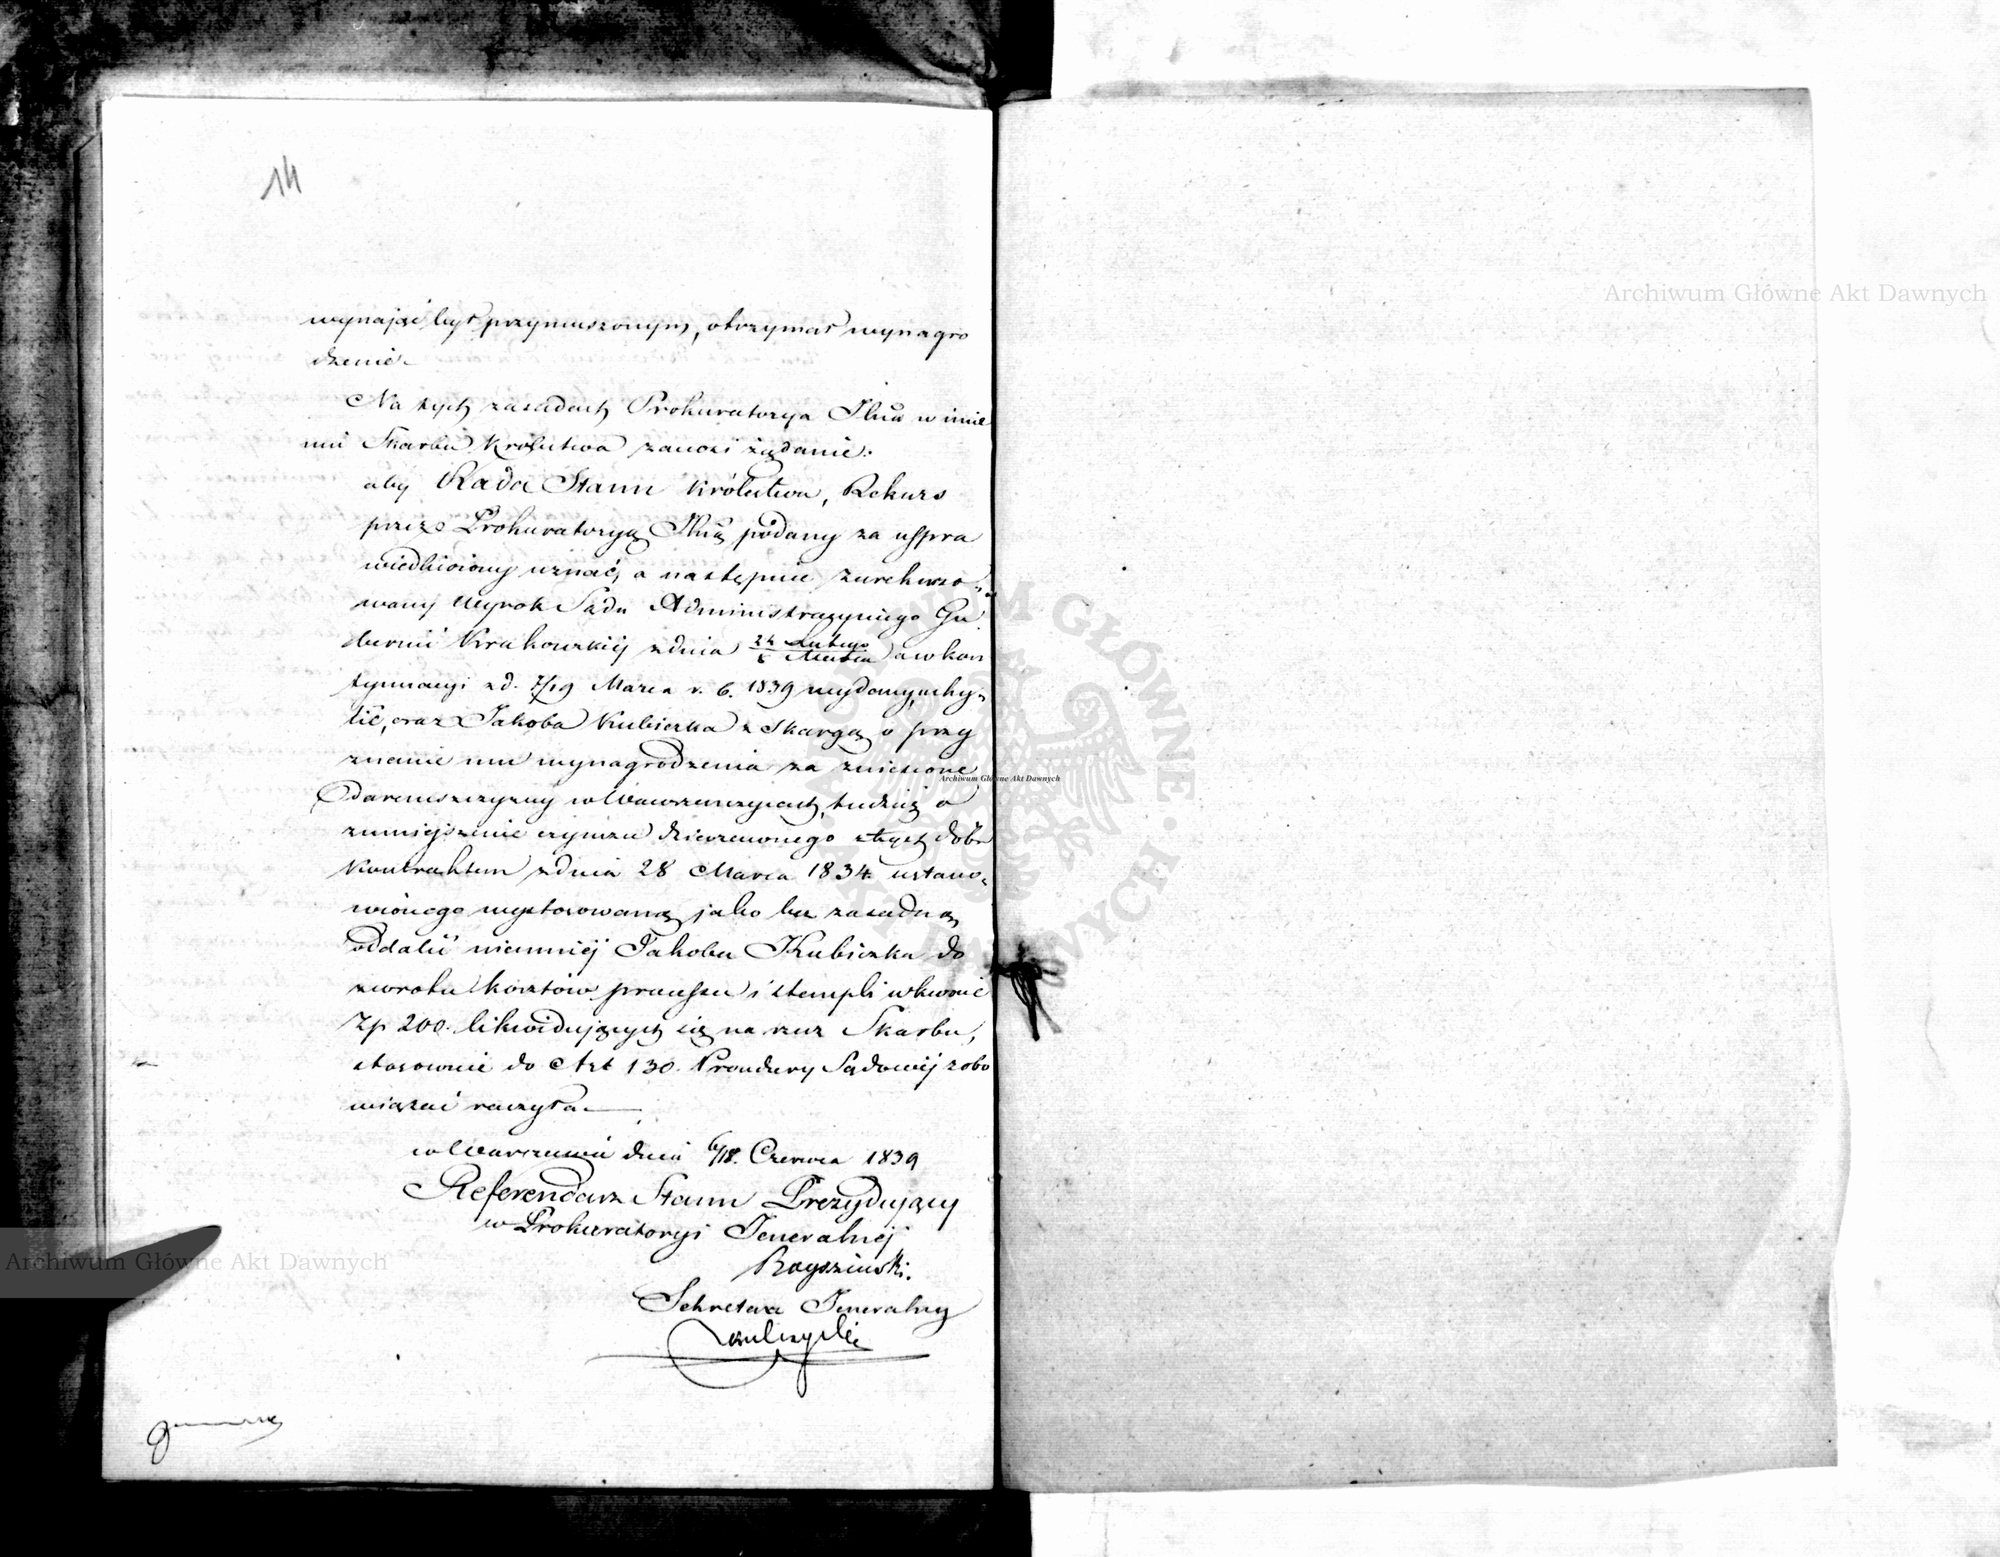 14
wynająć był przymuszonym, otrzymał wynagro
dzenie.
Na tych zasadach Prokuratorya Jlna w imie
niu Skarbu Królestwa zanosi żądanie:
aby Rada Stanu Królestwa, Rekurs
przez Prokuratoryą Jlną podany za uspra
wiedliwiony uznać, a następnie zarekurso-
wany Wyrok Sądu Administracyjnego Gu
bernii Krakowskiej z dnia 24 Lutego
Marca a w kon
tynuacyi z d. 7/19 Marca r. b. 1839 wydany, uchy-
lić, oraz Jakoba Kubiczka z skargą o przy
znanie mu wynagrodzenia za zniesione
Daremszczyzny w Wawrzeńczycach, tudzież o
zmniejszenie czynszu dzierżawnego z tych dóbr
Kontraktem z dnia 28 Marca 1834 ustano-
wionego wystosowaną jako bez zasadną
oddalić niemniej Jakoba Kubiczka do
zwrotu kosztów processu i stempli w kwocie
Zp 200. likwidujących się na rzecz Skarbu,
stosownie do Art 130. Procedury Sądowej zobo
wiązać raczyła.
w Warszawie dnia 6/18. Czerwca 1839
Referendarz Stanu Prezydujący
w Prokuratoryi Jeneralnej
Sekretarz Jeneralny
Archiwum Główne Akt Dawnych
Archiwum Główne Akt Dawnych
Archiwum Główne Akt Dawnych